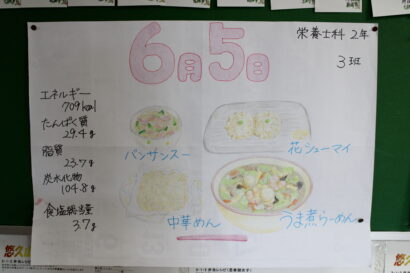 6月5日
栄養士科 2年
3班
エネルギー
709kcal
たんぱく質
29.4g
脂質
23.7g
炭水化物
104.8g
食塩相当量
3.7g
バンサンスー
花シューマイ
中華めん
うま煮らーめん